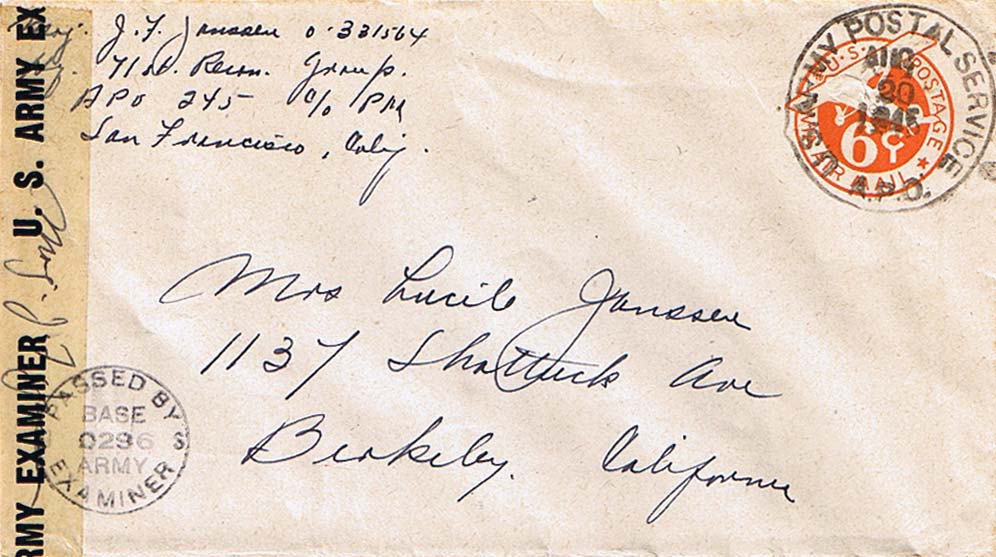 J. F. Janssen O-331564
71st. Recon. Group.
APO 245 c/o PM
San Francisco, Calif.
U.S. POSTAGE
6¢
AIR MAIL
ARMY POSTAL SERVICE
AUG
20
1945
A.P.O.
Mrs Lucile Janssen
1137 Shattuck Ave
Berkeley. California
U. S. ARMY EX
ARMY EXAMINER
PASSED BY
BASE
0296
ARMY
EXAMINER